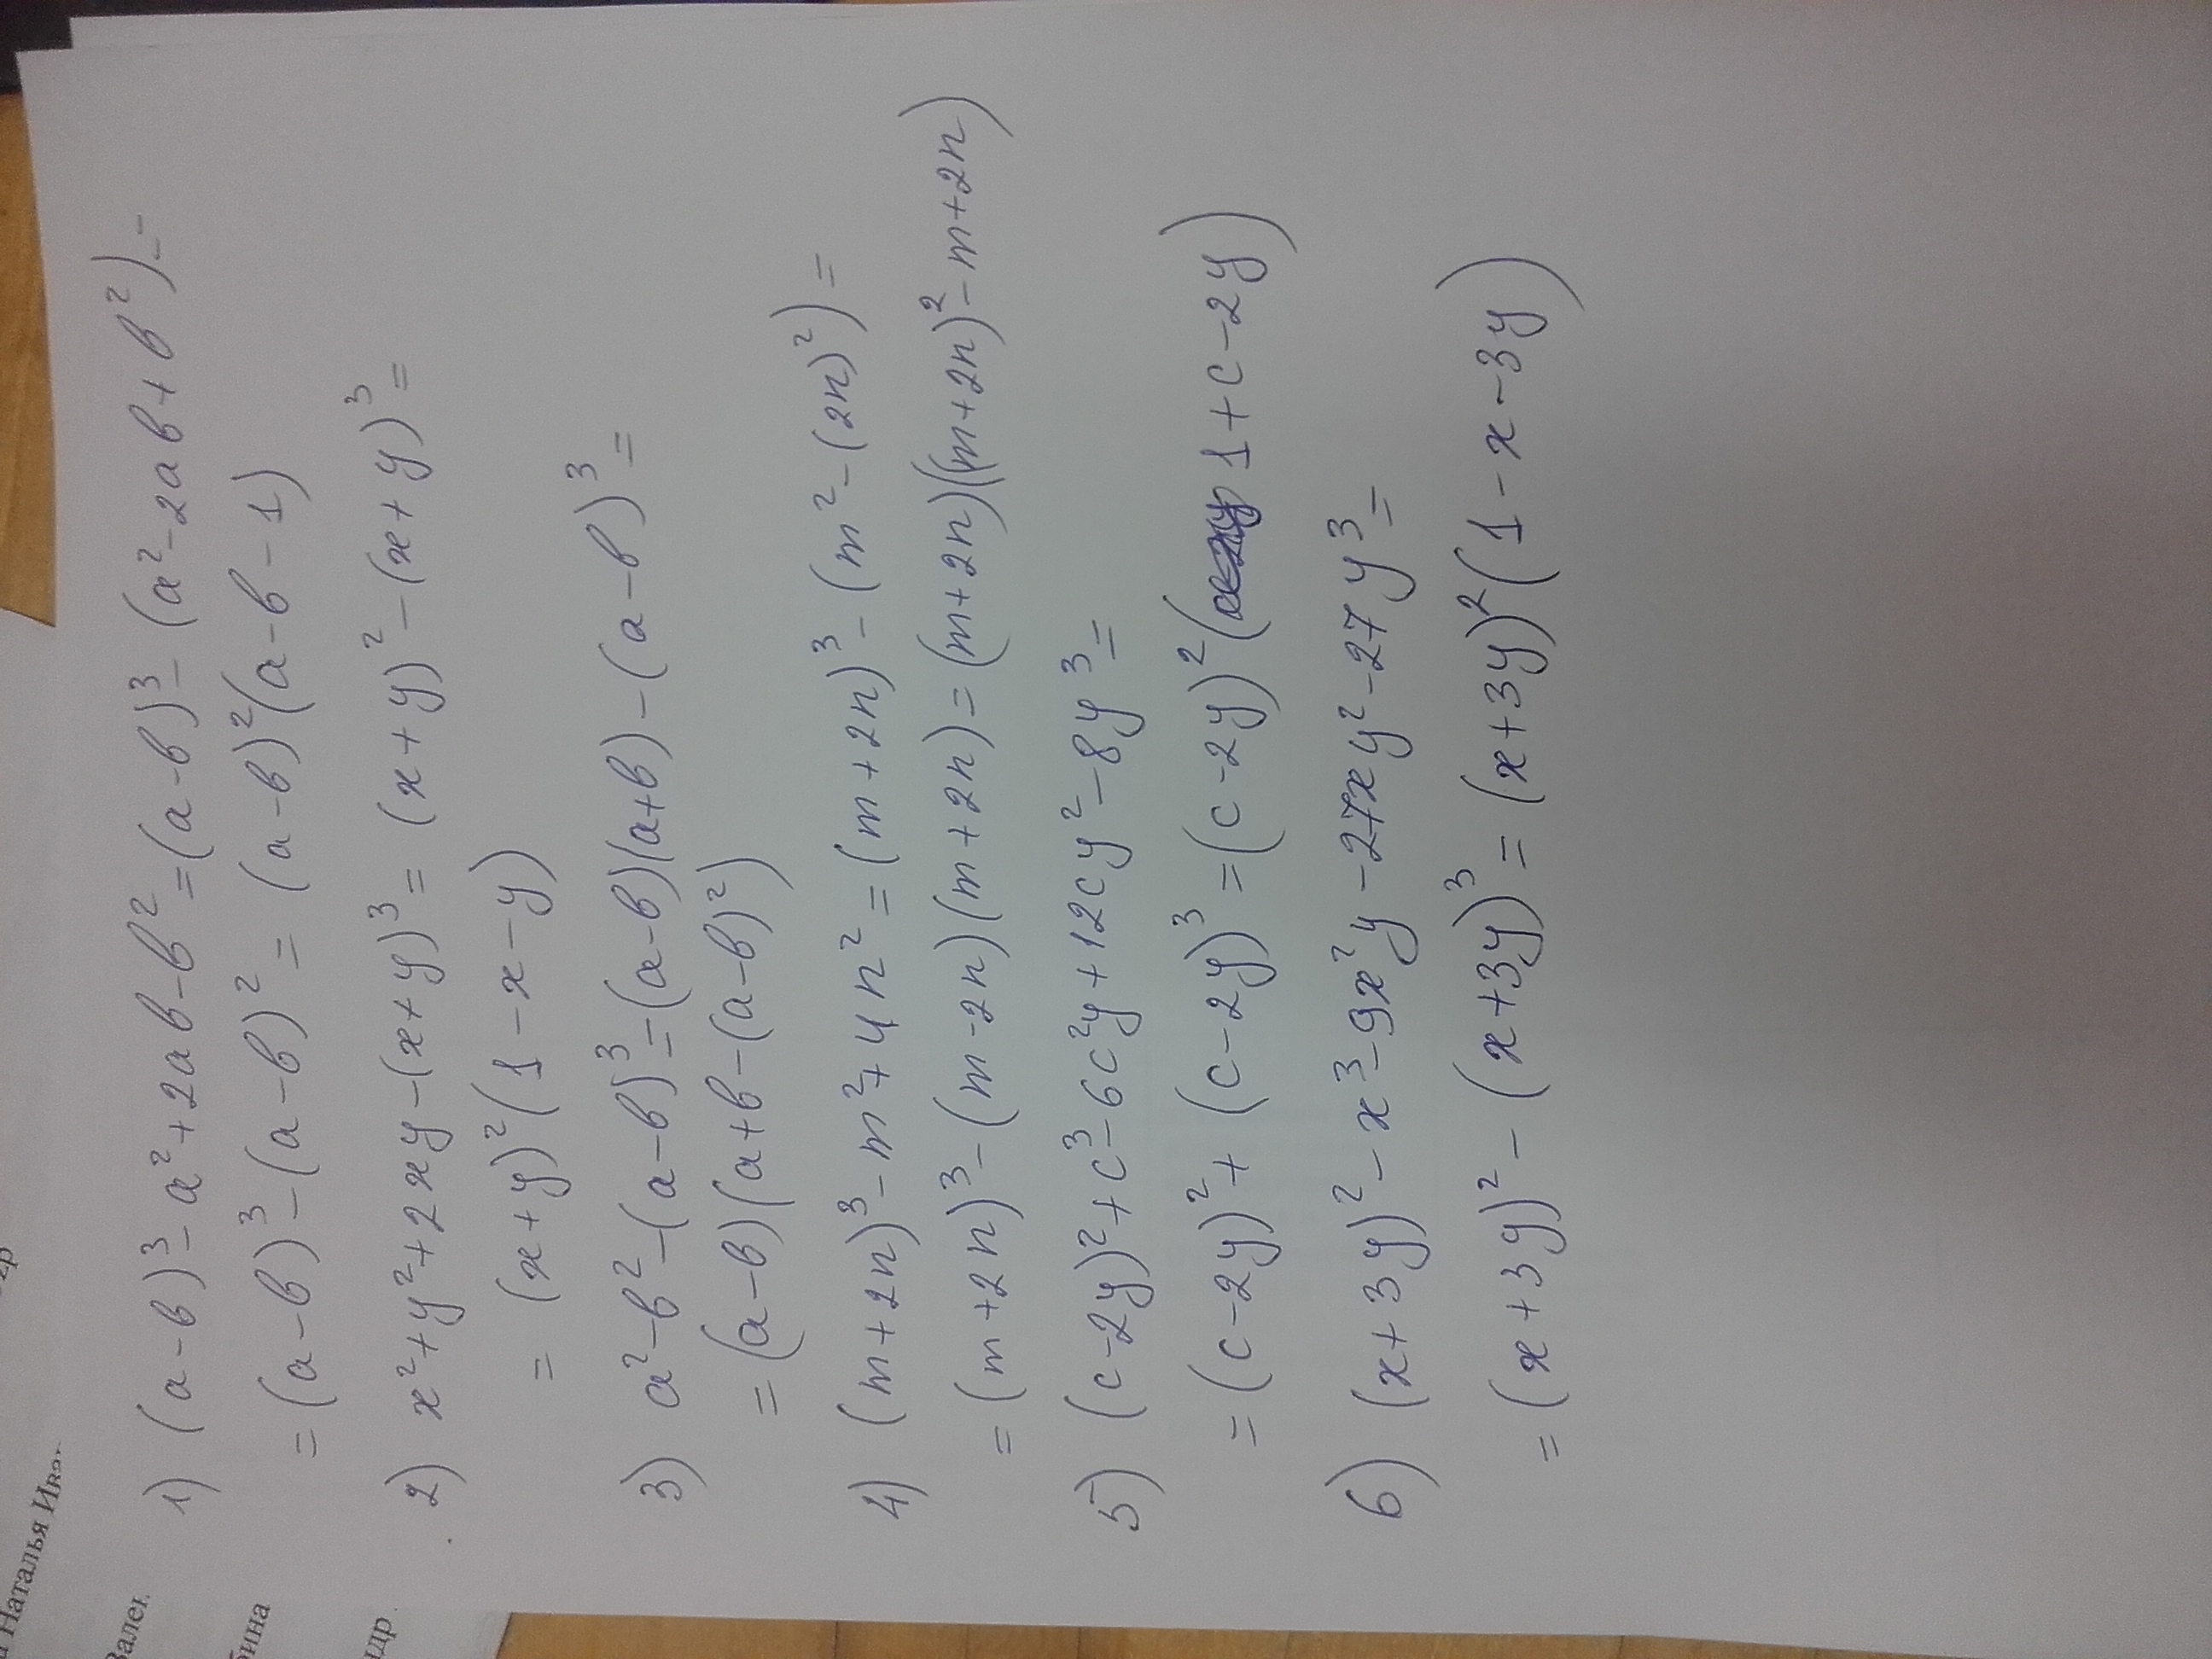 1) (a-b)³-a²+2ab-b²=(a-b)³-(a²-2ab+b²)=
=(a-b)³-(a-b)²=(a-b)²(a-b-1)
2) x²+y²+2xy-(x+y)³=(x+y)²-(x+y)³=
=(x+y)²(1-x-y)
3) a²-b²-(a-b)³=(a-b)(a+b)-(a-b)³=
=(a-b)(a+b-(a-b)²)
4) (m+2n)³-m²+4n²=(m+2n)³-(m²-(2n)²)=
=(m+2n)³-(m-2n)(m+2n)=(m+2n)((m+2n)²-m+2n)
5) (c-2y)²+c³-6c²y+12cy²-8y³=
=(c-2y)²+(c-2y)³=(c-2y)²(1+c-2y)
6) (x+3y)²-x³-9x²y-27xy²-27y³=
=(x+3y)²-(x+3y)³=(x+3y)²(1-x-3y)
Наталья
бина